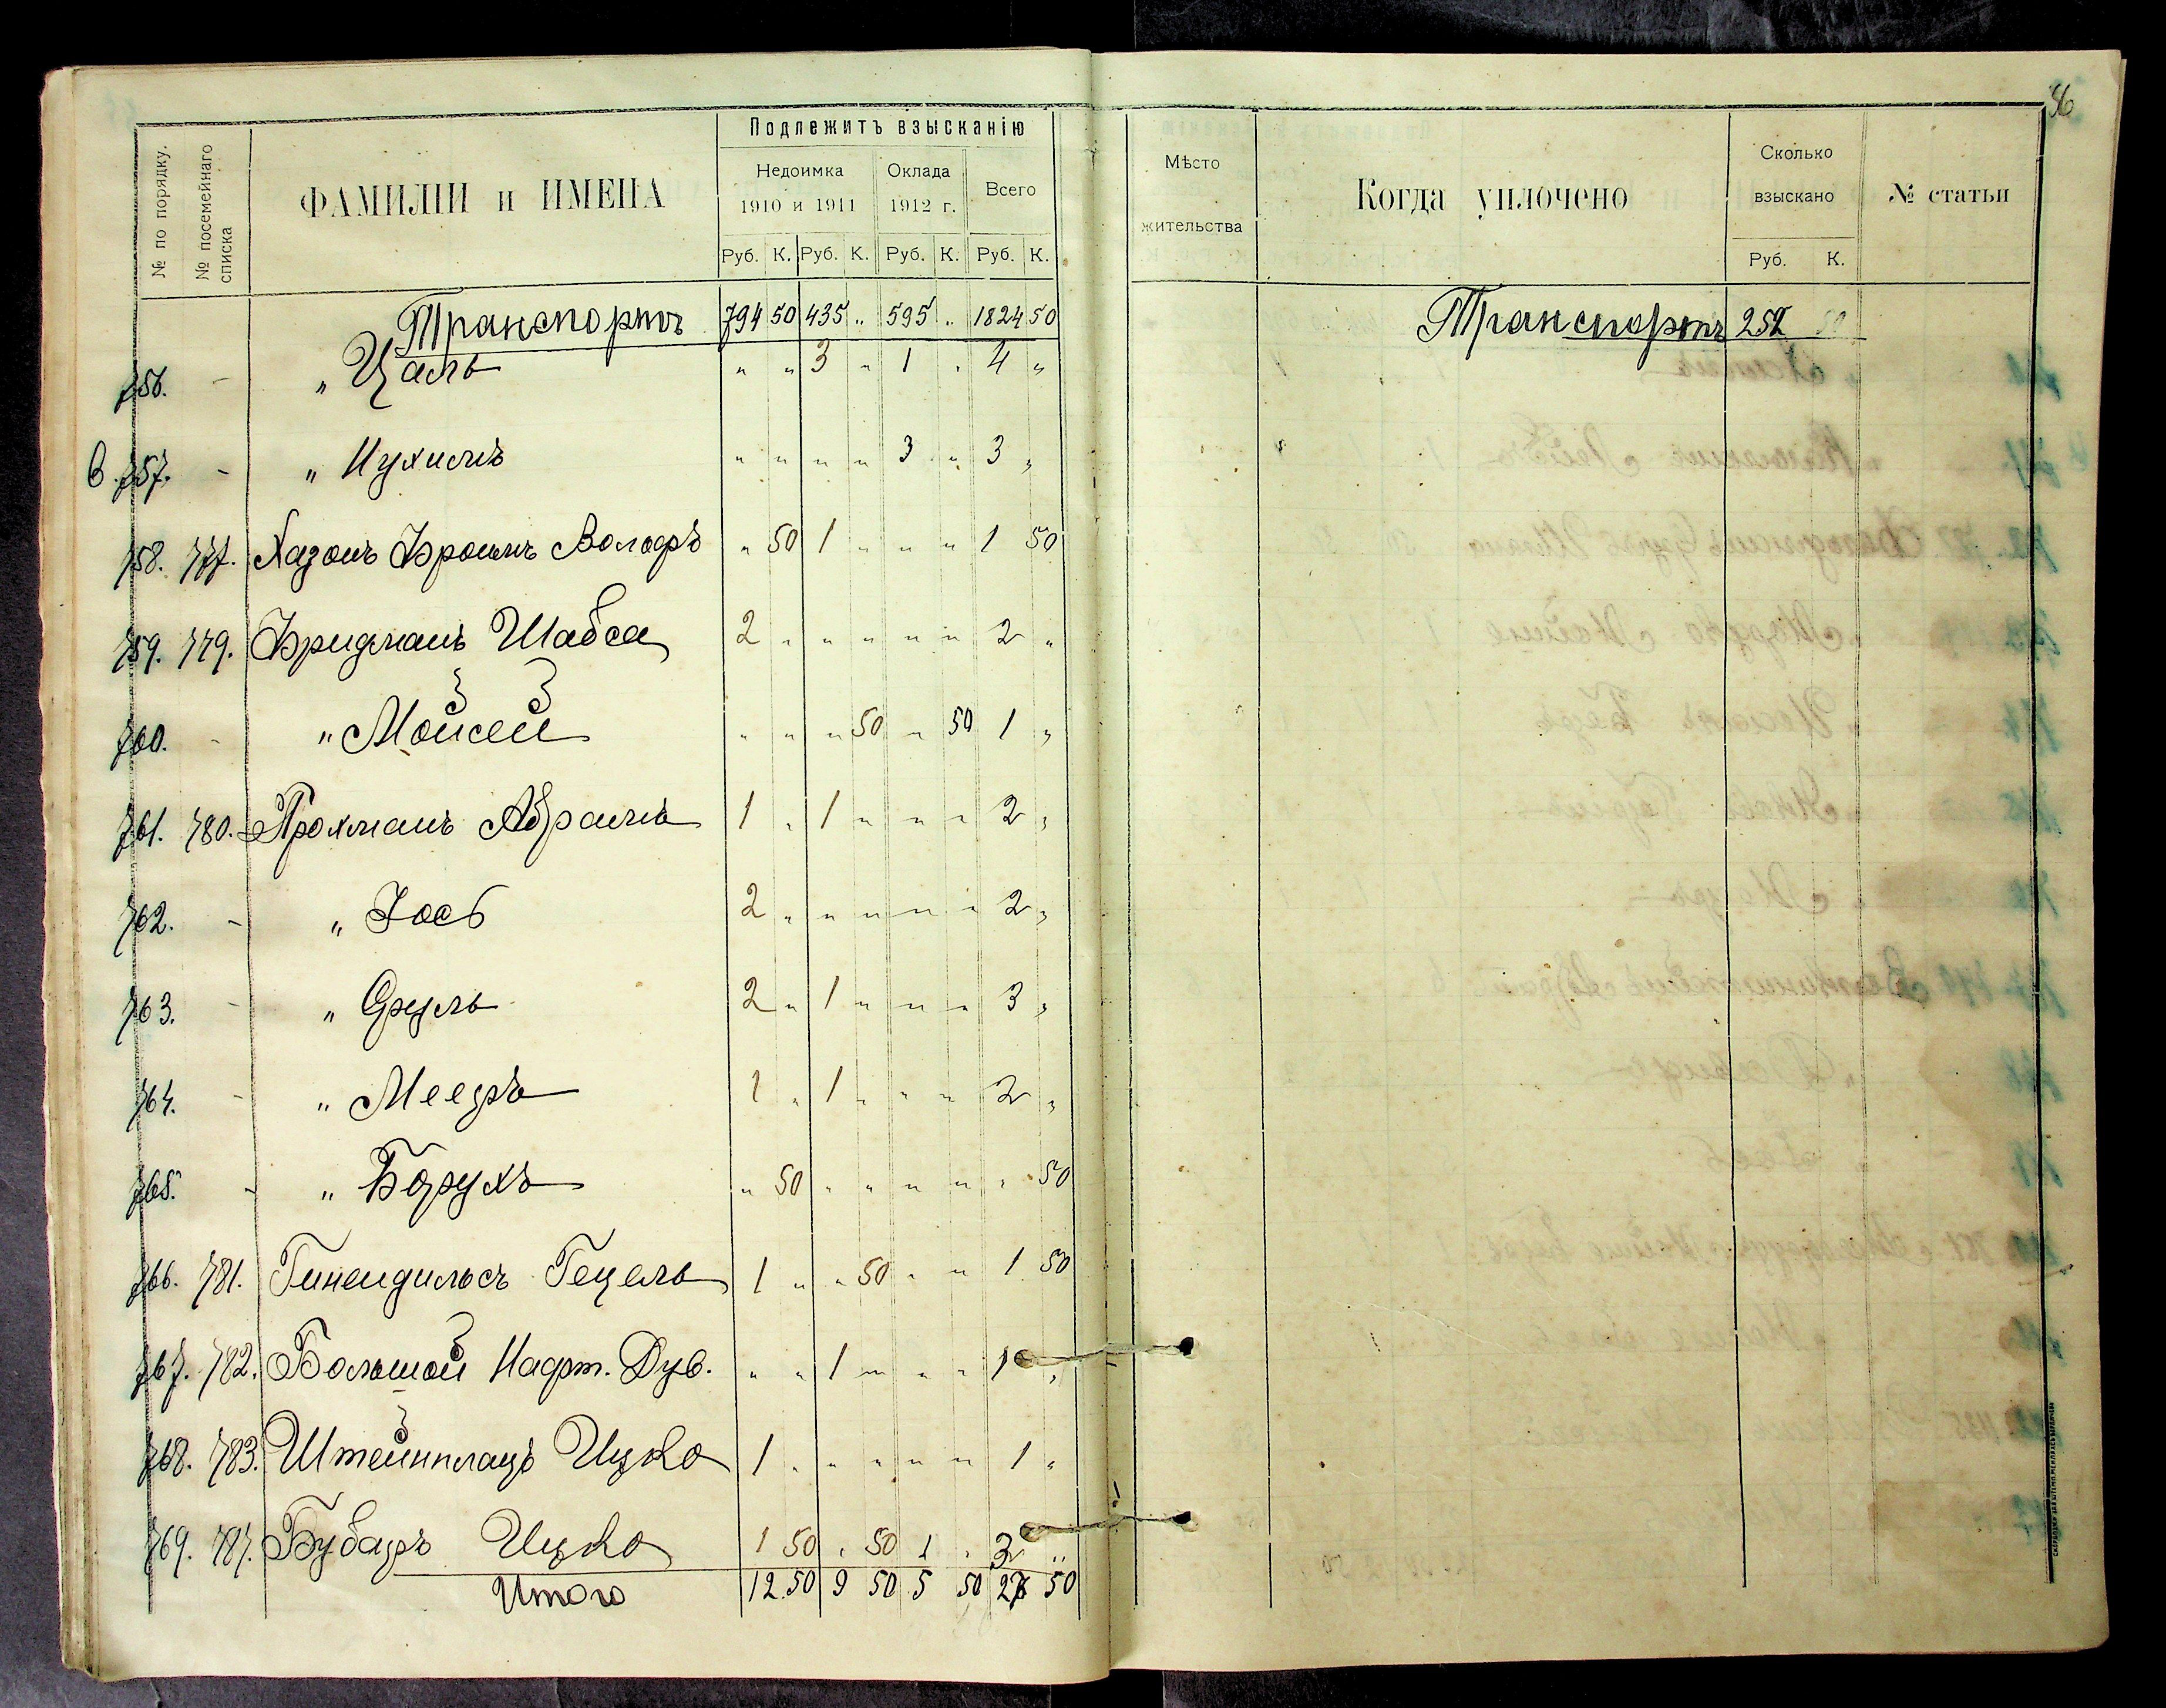 36
№ по порядку.
№ посемейнаго списка
ФАМИЛІИ и ИМЕНА
Подлежитъ взысканію
Недоимка 1910 и 1911
Оклада 1912 г.
Всего
Руб. К. Руб. К. Руб. К. Руб. К.
Транспортъ 794 50 435 „ 595 „ 1824 50
756. - „ Цаль „ „ 3 „ 1 „ 4 „
в. 757. - „ Нухимъ „ „ „ „ 3 „ 3 „
758. 777. Хазонъ Фроимъ Вольфъ „ 50 1 „ „ „ 1 50
759. 779. Фридманъ Шабса 2 „ „ „ „ „ 2 „
760. - „ Мойсей „ „ „ 50 „ 50 1 „
761. 780. Трохманъ Абрамъ 1 „ 1 „ „ „ 2 „
762. - „ Іось 2 „ „ „ „ „ 2 „
763. - „ Сруль 2 „ 1 „ „ „ 3 „
764. - „ Мееръ 1 „ 1 „ „ „ 2 „
765. - „ Борухъ „ 50 „ „ „ „ „ 50
766. 781. Гинендильсъ Гецель 1 „ „ 50 „ „ 1 50
767. 782. Большой Нафт. Дув. „ „ 1 „ „ „ 1 „
768. 783. Штейнплацъ Ицко 1 „ „ „ „ „ 1 „
769. 787. Бубаръ Ицко 1 50 „ 50 1 „ 3 „
Итого 12 50 9 50 5 50 27 50
Мѣсто жительства
Когда уплочено
Сколько взыскано
Руб. К.
№ статьи
Транспортъ 252 50